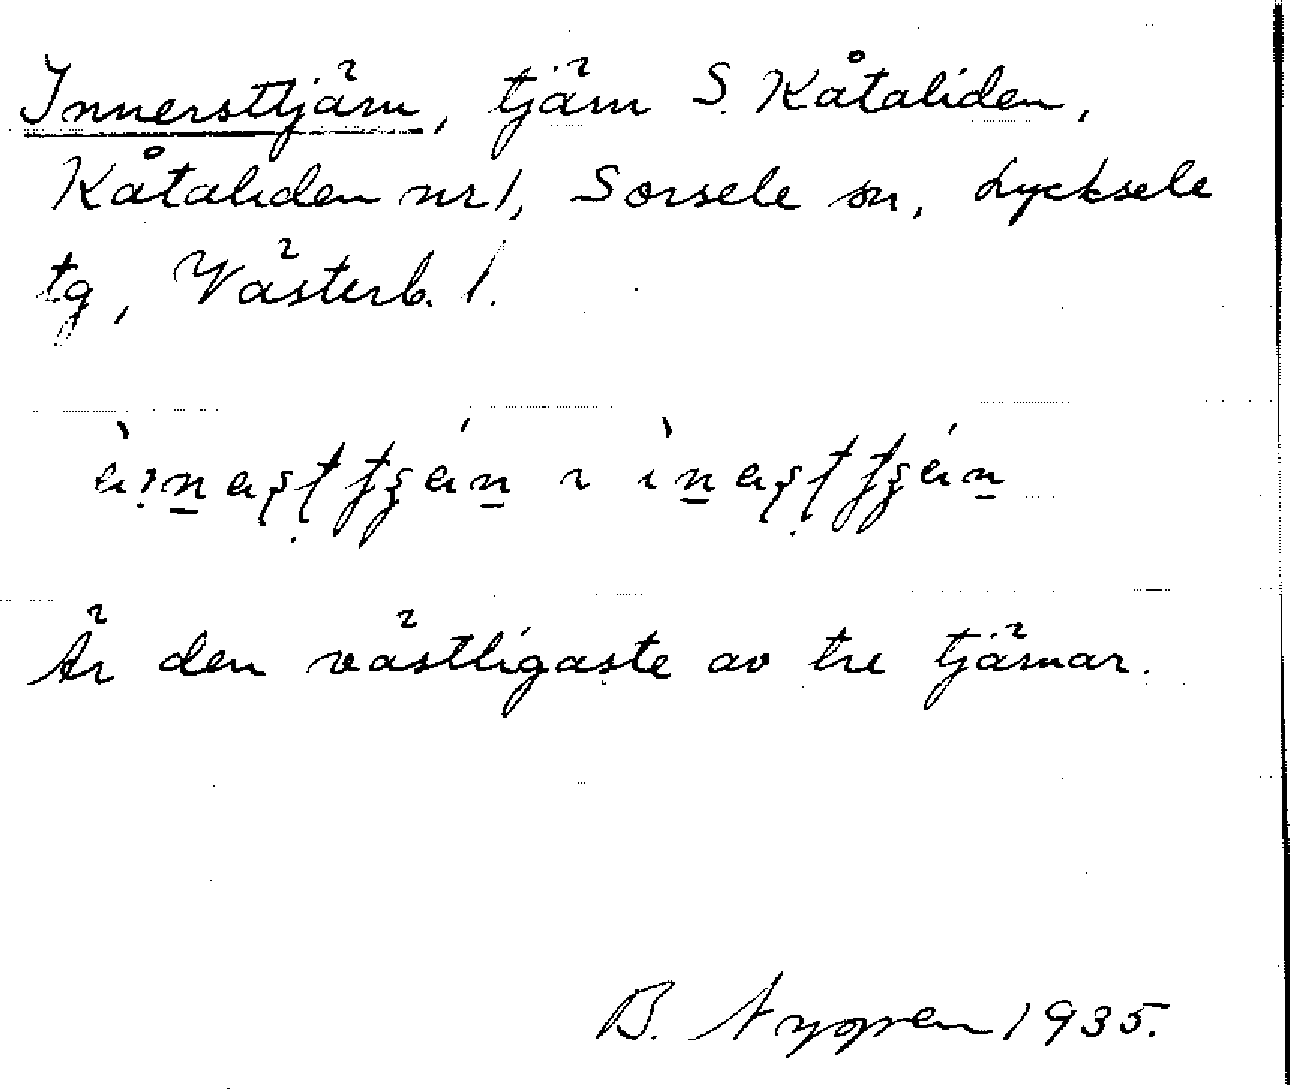 Innersttjärn, tjärn S. Kåtaliden,
Kåtaliden nr 1, Sorsele sn, Lycksele
tg, Västerb. l.
Är den västligaste av tre tjärnar.
B. Nygren 1935.